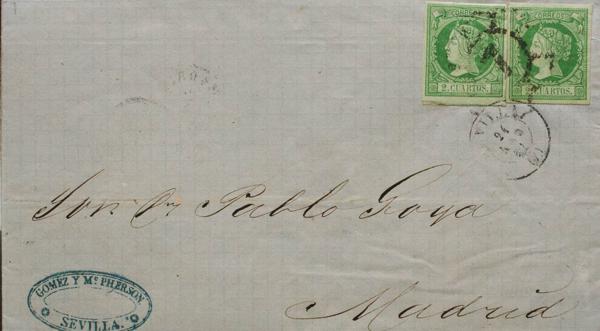 CORREOS CORREOS
2. CUARTOS. CUARTOS.
Sor. Dn. Pablo Goya
Madrid
GOMEZ Y Mc PHERSON
SEVILLA.